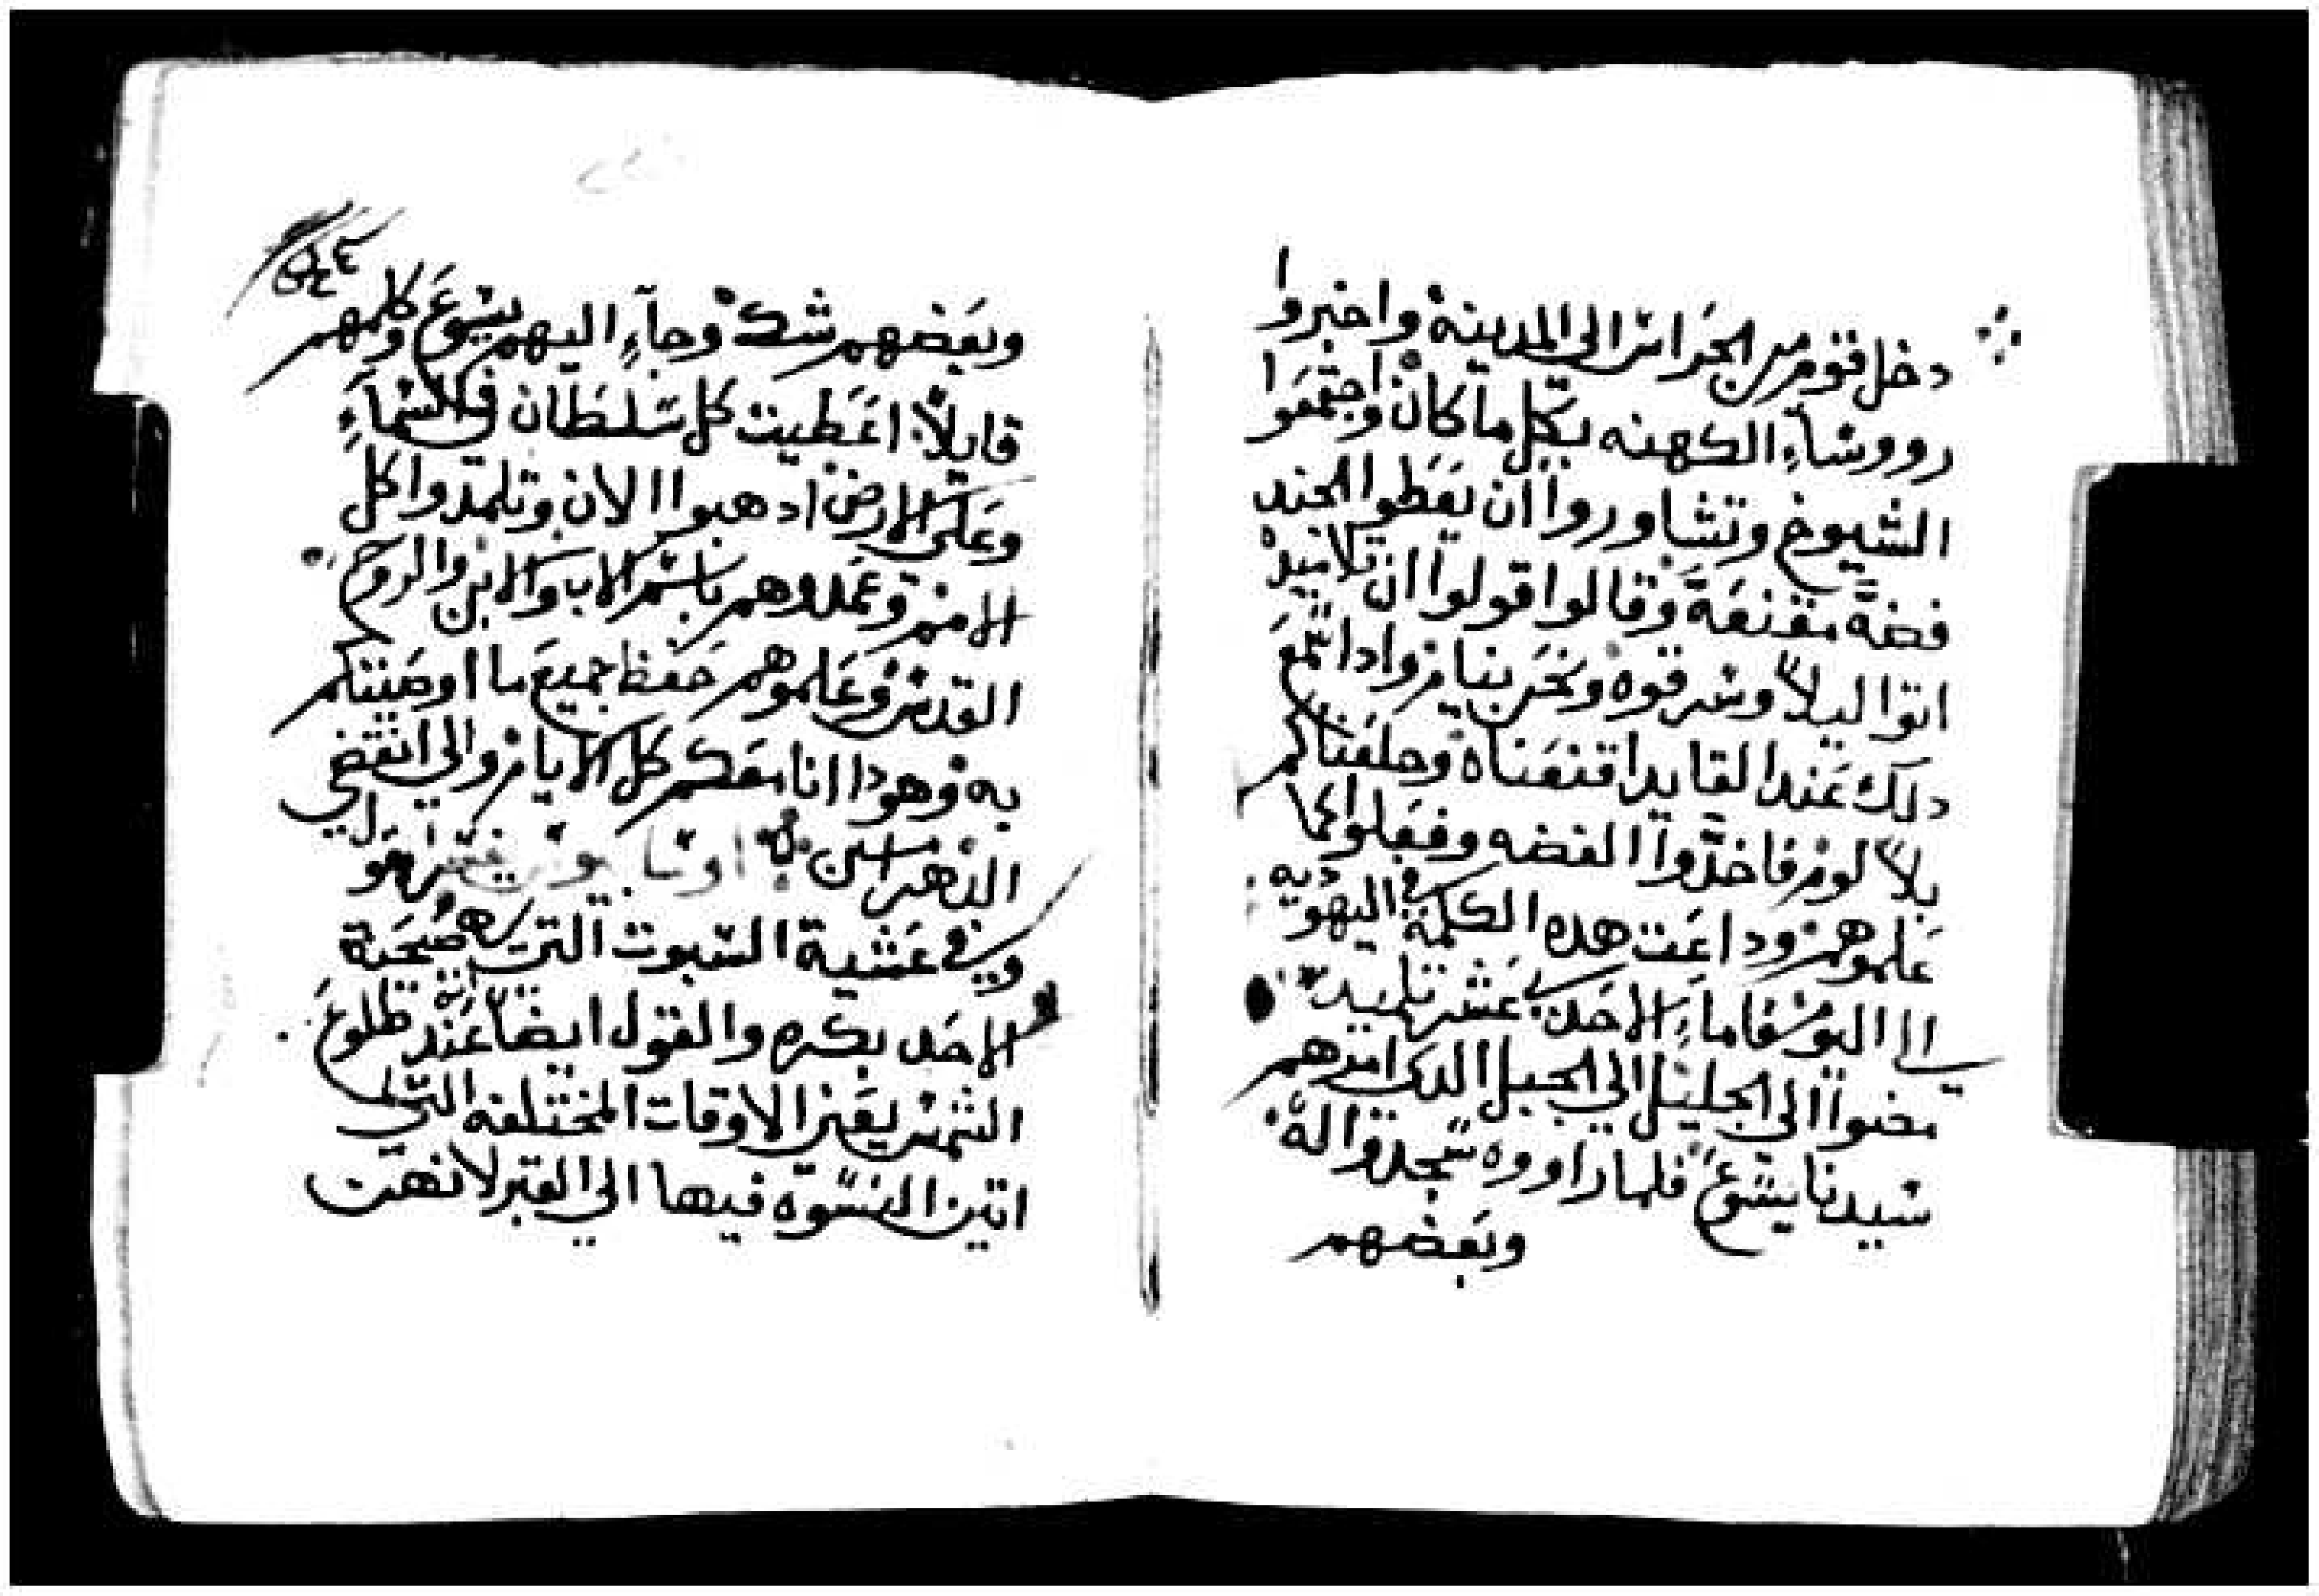 دخل قوم من الحراس الى المدينة واخبروا
رووساء الكهنه بكل ما كان واجتمعوا
الشيوخ وتشاوروا ان يعطوا الجند
فضة مقنعة وقالوا قولوا ان تلاميده
اتوا ليلاً وسرقوه ونحن نيام وادا سمع
دلك عند القايد اقنعناه وجعلناكم
بلا لوم فاخدوا الفضه وفعلوا كما
علموهم وداعت هده الكلمة في اليهودية
الى اليوم فاما الاحدى عشر تلميد
مضوا الى الجليل الى الجبل الدى امرهم
سيدنا يسوع فلما راووه سجدوا له
وبعضهم
وبعضهم شك وجآء اليهم يسوع وكلمهم
قايلاً اعطيت كل سلطان في السمآء
وعلى الارض ادهبوا الان وتلمدوا كل
الامم وعمدوهم باسم الاب والابن والروح
القدس وعلموهم حفظ جميع ما اوصيتكم
به وهودا انا معكم كل الايام والى انقضى
الدهر امين
وفي عشية السبوت التى هى صبحية
الاحد بكره والقول ايضاً انه عند طلوع
الشمس يعنى الاوقات المختلفه التى
اتين النسوه فيها الى القبر لانهن